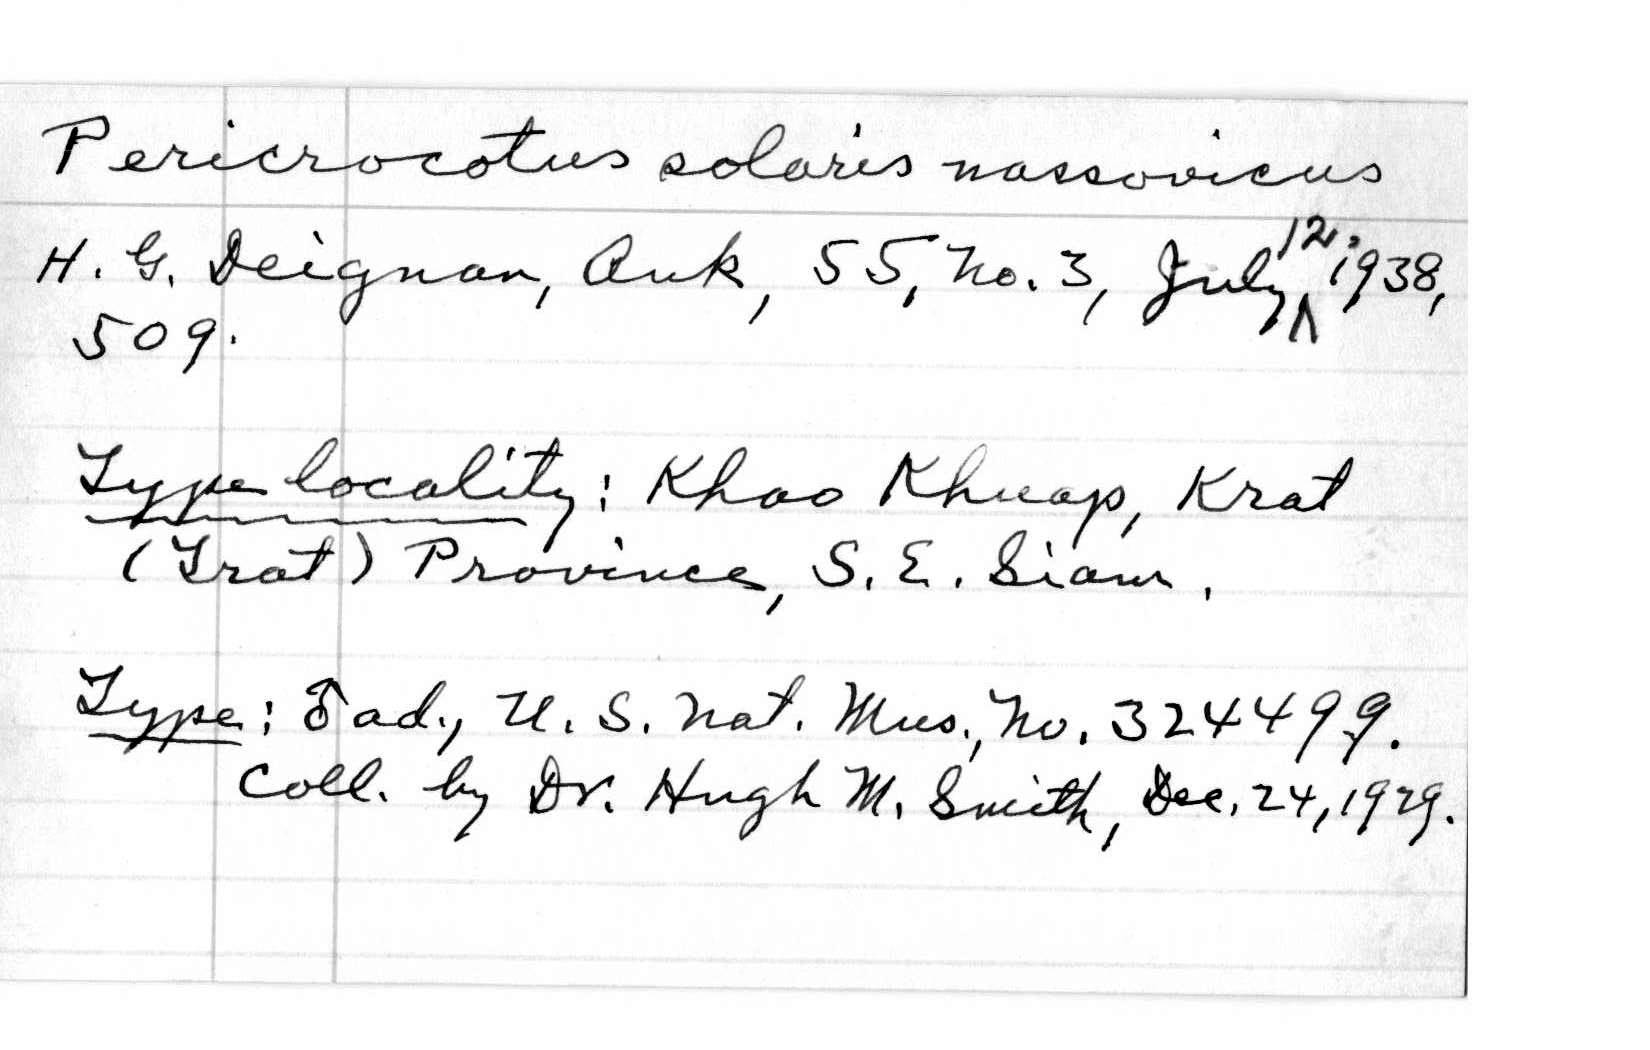 Pericrocotus solaris nassovicus
H. G. Deignan, Auk, 55, No. 3, July 12, 1938,
509.
Type locality: Khao Khuap, Krat
(Trat) Province, S. E. Siam.
Type: ♂ ad., U. S. Nat. Mus., No. 324499.
Coll. by Dr. Hugh M. Smith, Dec. 24, 1929.